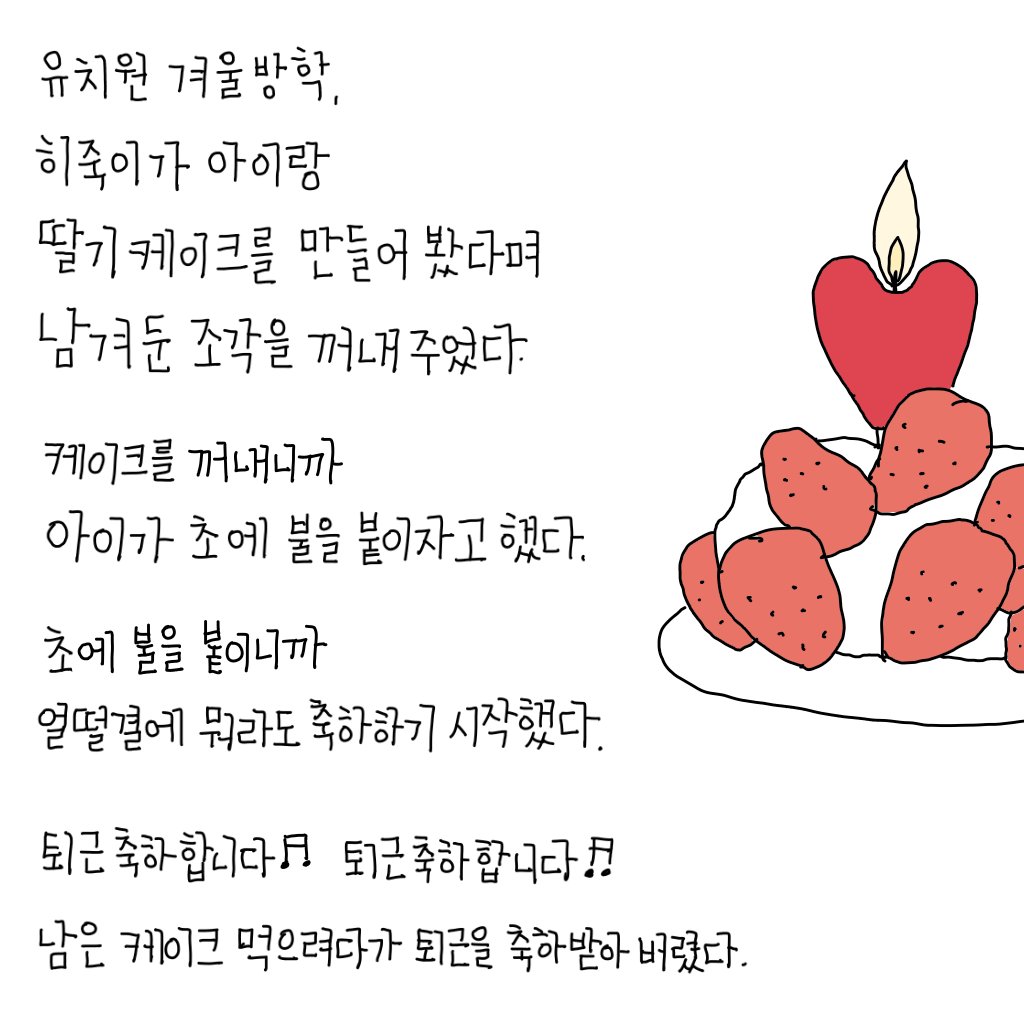 유치원 겨울방학,
히죽이가 아이랑
딸기케이크를 만들어 봤다며
남겨둔 조각을 꺼내주었다.
케이크를 꺼내니까
아이가 초에 불을 붙이자고 했다.
초에 불을 붙이니까
얼떨결에 뭐라도 축하하기 시작했다.
퇴근축하합니다♬ 퇴근축하합니다♬
남은 케이크 먹으려다가 퇴근을 축하받아 버렸다.